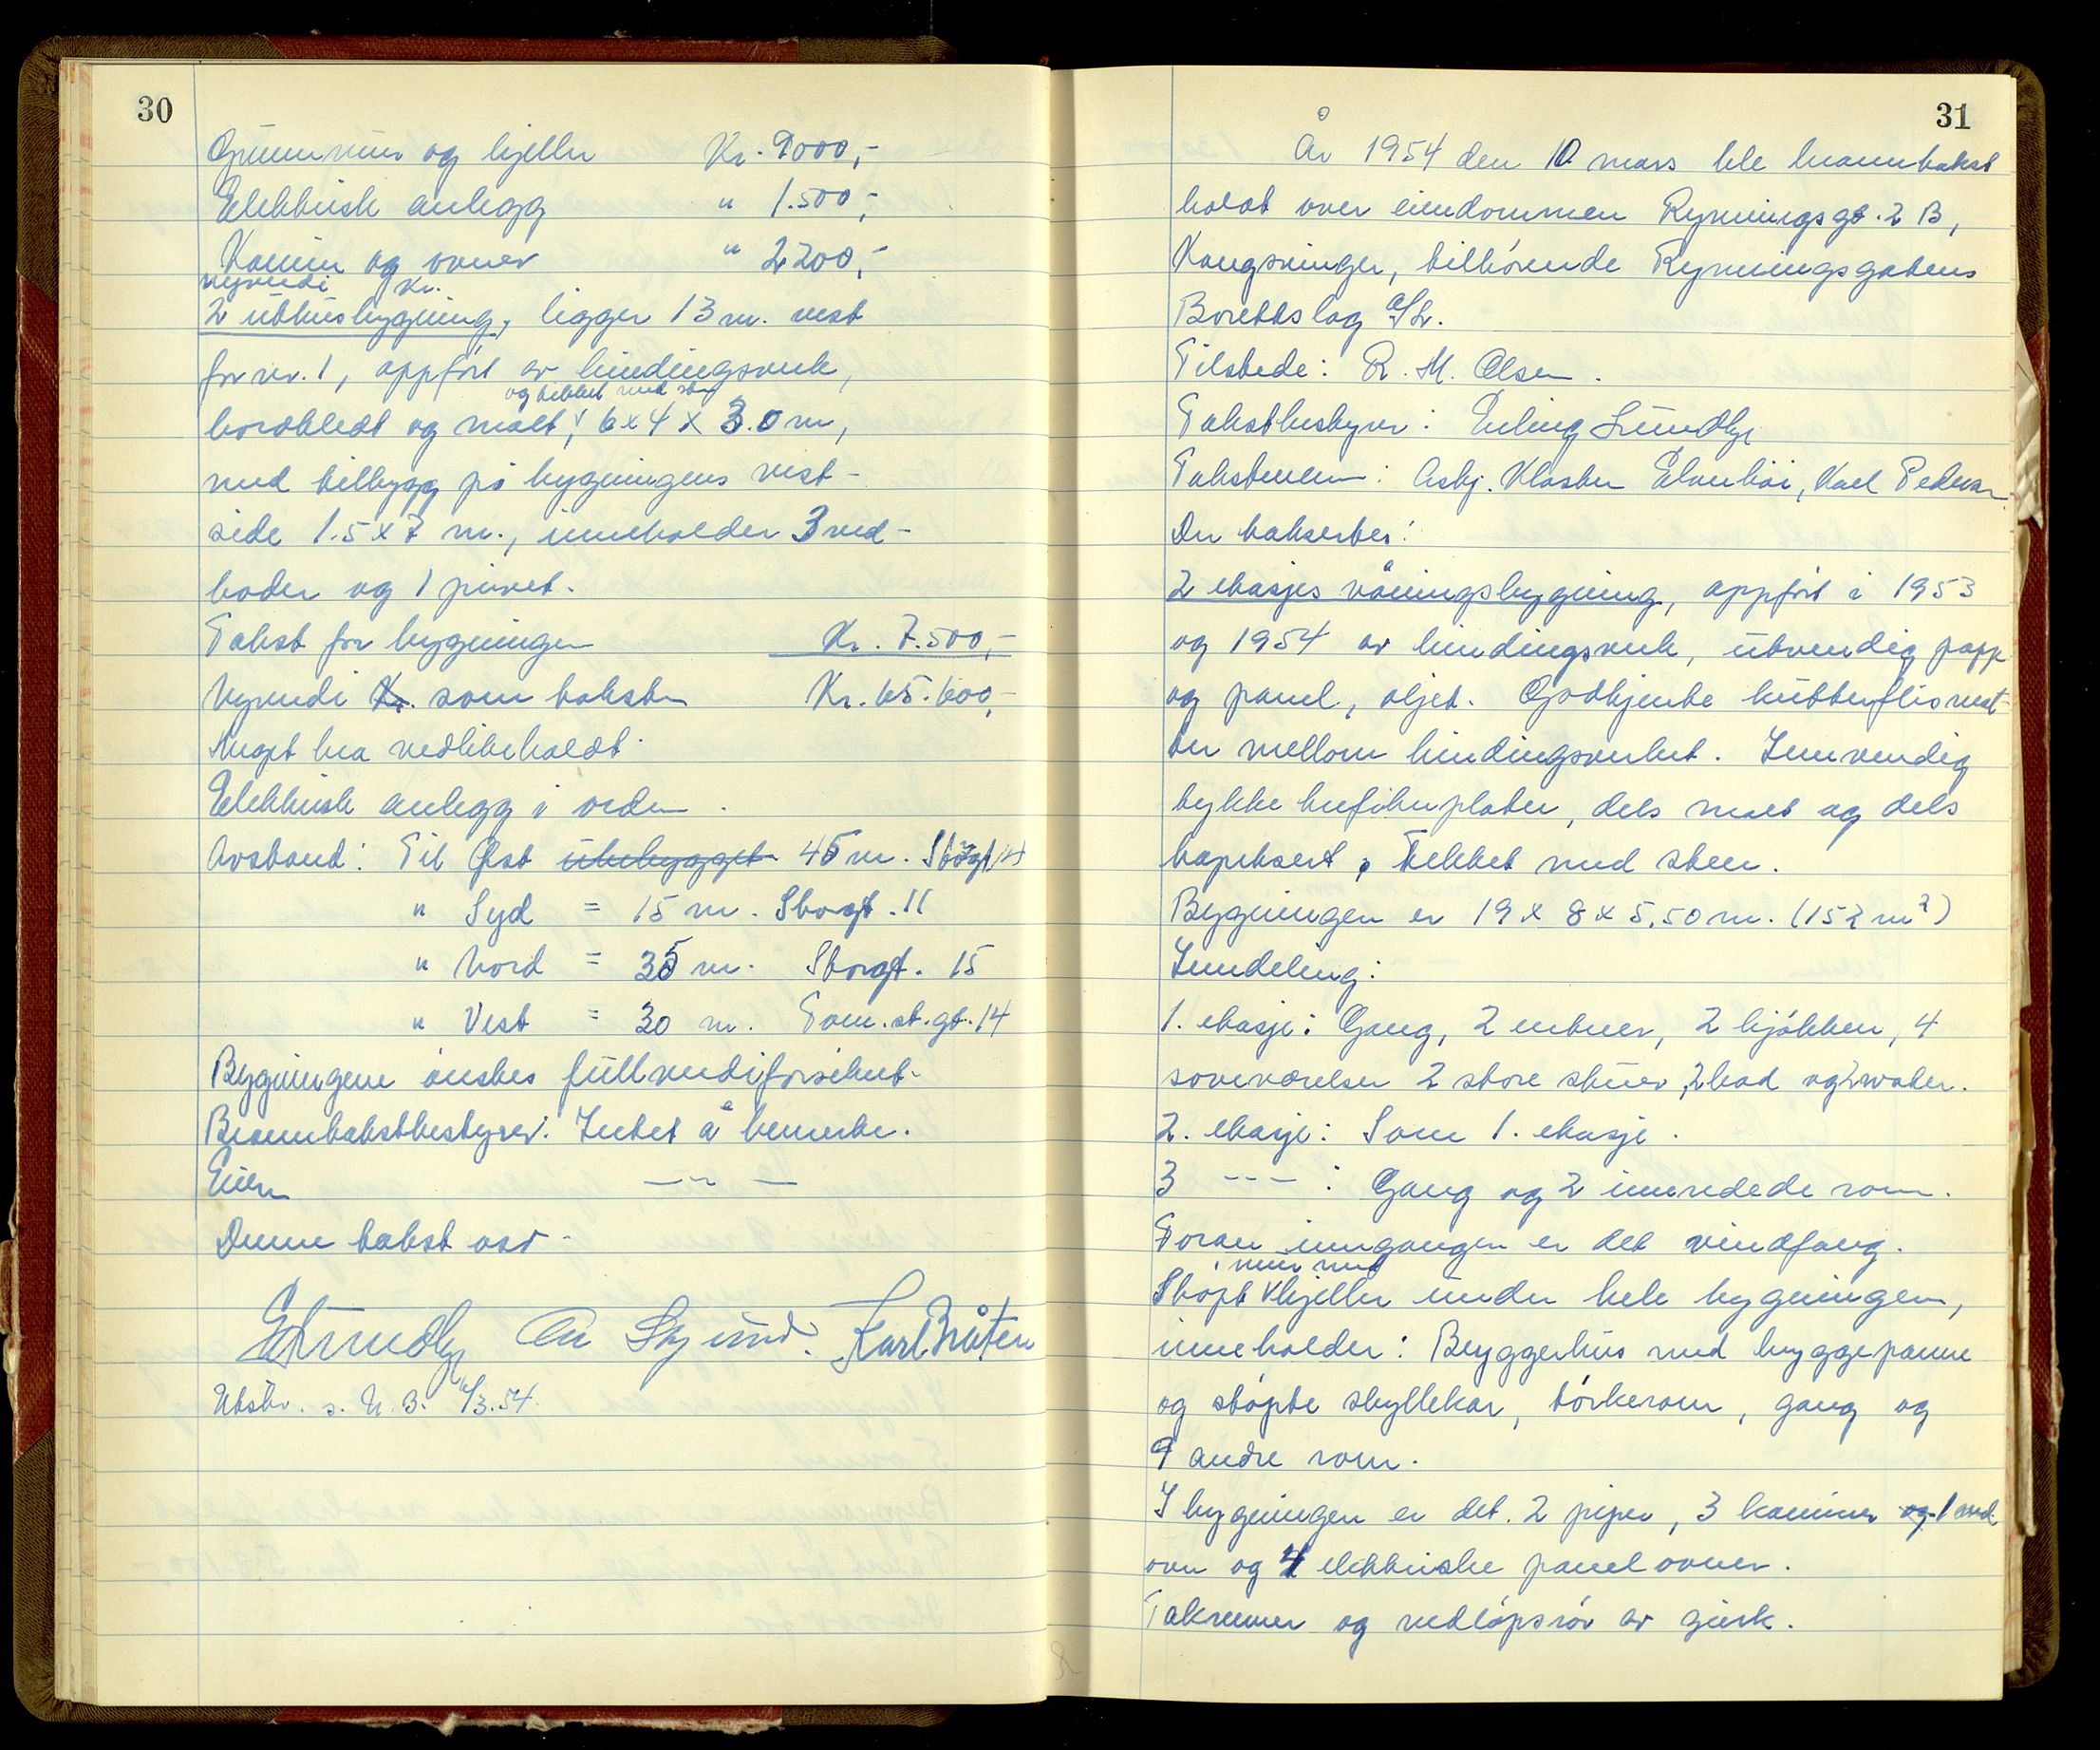 30
Grunnmur og kjeller Kr. 9000,-
Elektrisk anlegg " 1.500,-
Kamin og ovner " 2200,-
nyverdi Kr.
2 uthusbygning, ligger 13 m. vest
for nr. 1, oppført av bindingsverk,
og tekket med sten
bordkledt og malt, 6 x 4 x 3.0 m,
med tilbygg på bygningens vest-
side 1.5 x 7 m., inneholder 3 ved-
boder og 1 privet.
Takst for bygningen Kr. 7.500,-
Nyverdi Kr. som taksten Kr. 65.600,-
Meget bra vedlikeholdt.
Elektrisk anlegg i orden.
Avstand: Til Øst utebygget 45 m. Storgt.
" Syd = 15 m. Storgt. 11
" Nord = 35 m. Storgt. 15
" Vest = 30 m. Tom.st.gt. 14
Bygningene ønskes fullverdiforsikret.
Branntakstbestyrer. Intet å bemerke.
Eieren —"—
Denne takst ast.
E Lundby Karl Bråten
Utskr. s. N. B. /3.54.
31
År 1954 den 10 mars ble branntakst
holdt over eiendommen Rynningsgt. 2 B,
Kongsvinger, tilhørende Rynningsgatens
Borettslag A/L.
Tilstede: R. M. Olsen.
Takstbestyrer: Erling Lundby
Takstmenn: Asbj. Kloster Elverhøi, Karl Pedersen.
Der taksertes:
2 etasjes våningsbygning, oppført i 1953
og 1954 av bindingsverk, utvendig papp
og panel, oljet. Godkjente kutterflismat-
ter mellom bindingsverket. Innvendig
tykke trefiberplater, dels malt og dels
tapetsert. Tekket med sten.
Bygningen er 19 x 8 x 5.50 m. (152 m²)
Inndeling:
1. etasje: Gang, 2 entreer, 2 kjøkken, 4
soveværelser 2 store stuer, 2 bad og 2 water.
2. etasje: Som 1. etasje.
3 --- : Gang og 2 innredede rom.
Foran inngangen er det vindfang.
mur med
Støpt kjeller under hele bygningen,
inneholder: Bryggerhus med bryggepanne
og støpte skyllekar, tørkerom, gang og
9 andre rom.
I bygningen er det 2 piper, 3 kaminer og 1 and.
ovn og 4 elektriske panelovner.
Takrenner og nedløpsrør av zink.